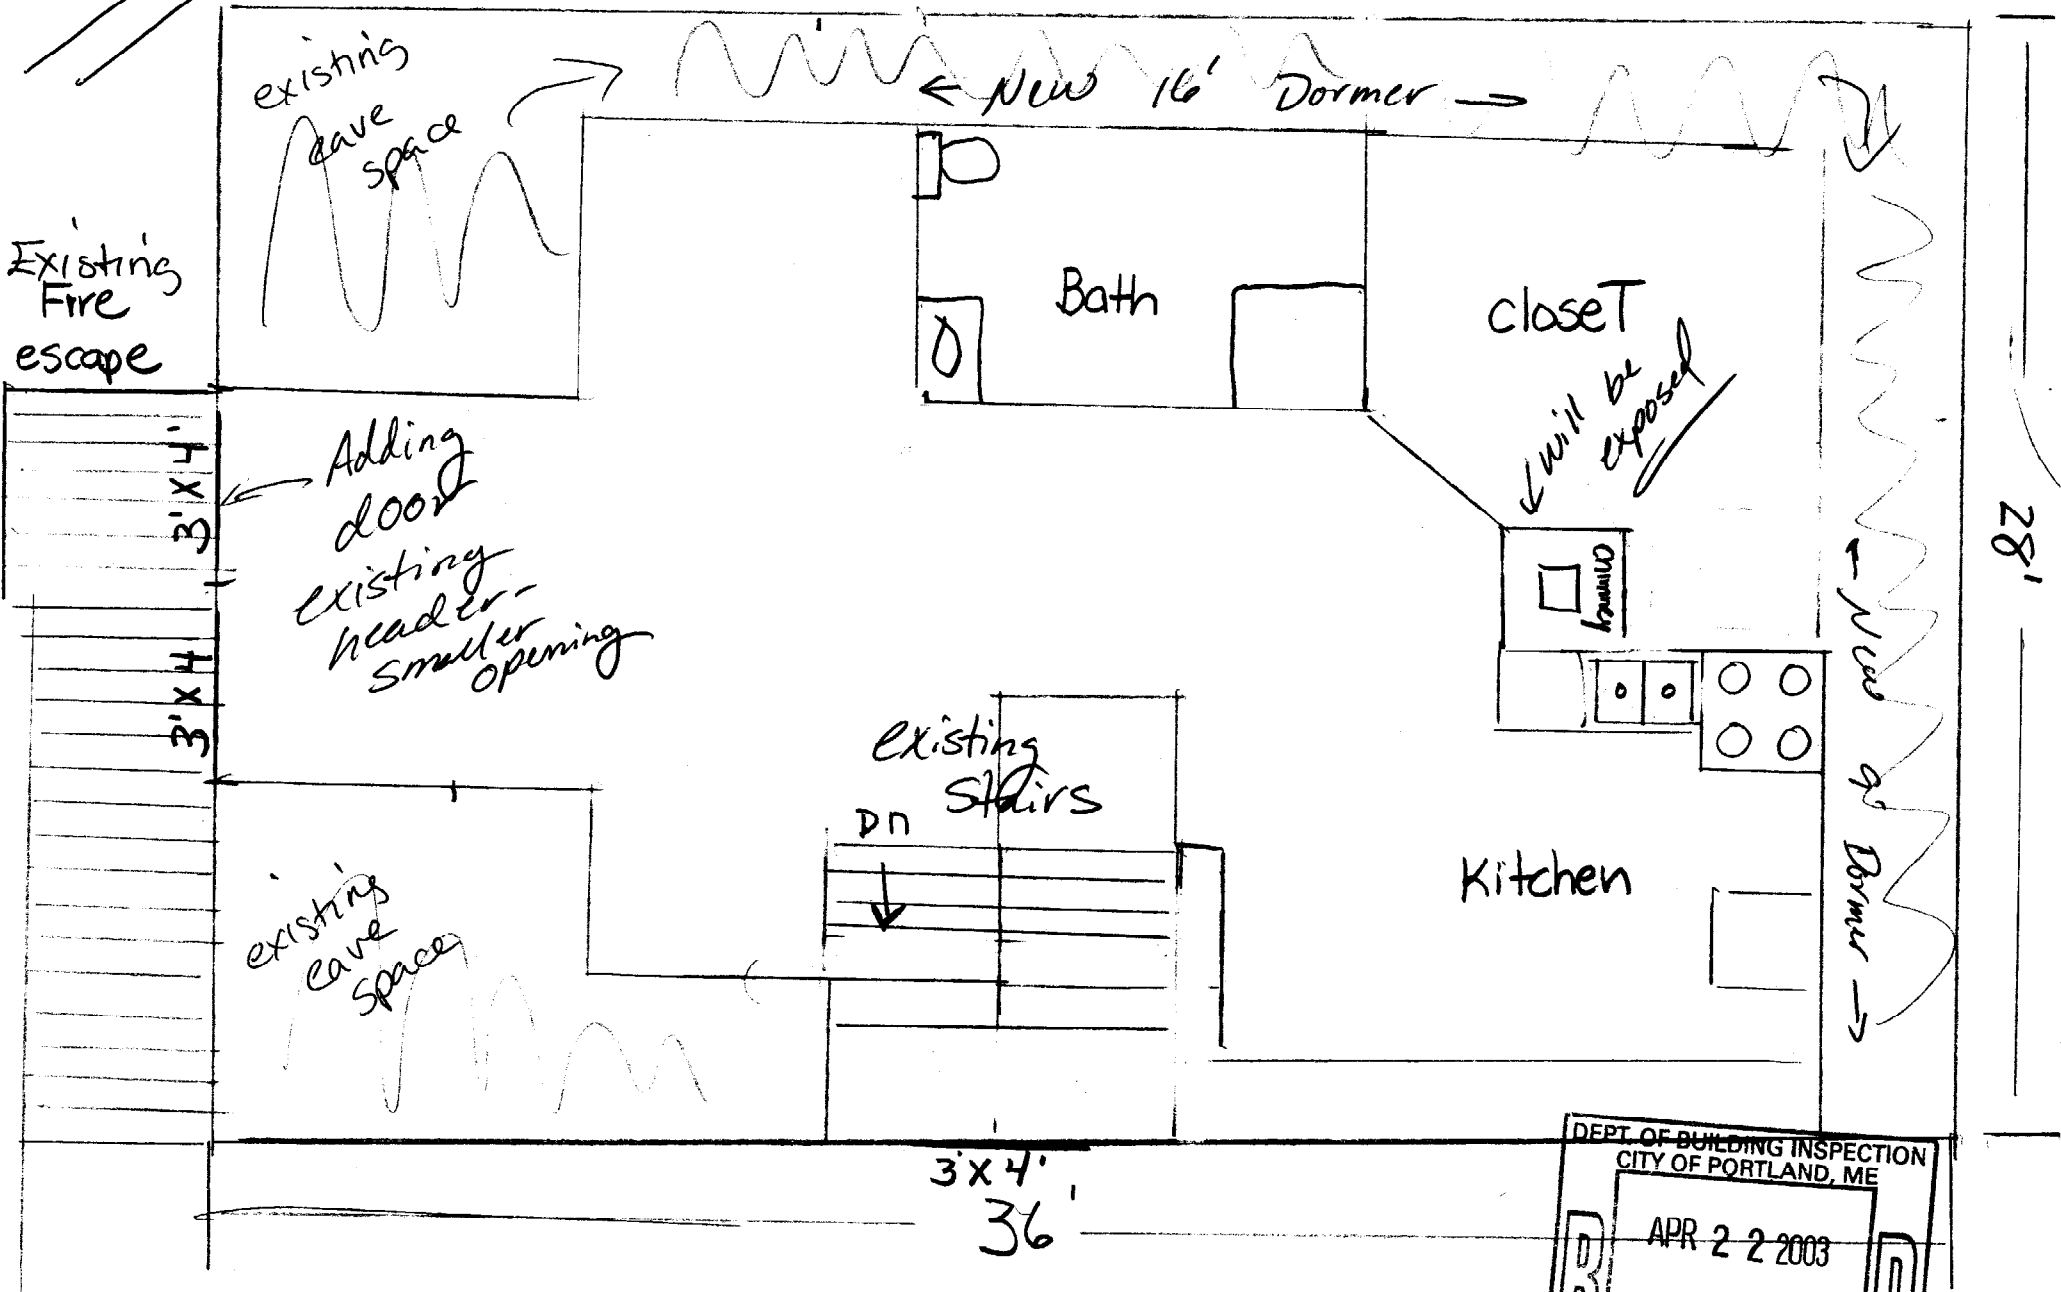 existing
eave
space
← New 16' Dormer →
Existing
Fire
escape
Bath
closeT
will be
exposed
3' X 4'
Adding
door
existing
header-
smaller
opening
chimney
28'
3' X 4
existing
stairs
Dn
Kitchen
← New 9' Dormer →
existing
eave
space
3' X 4'
36'
DEPT. OF BUILDING INSPECTION
CITY OF PORTLAND, ME
APR 2 2 2003